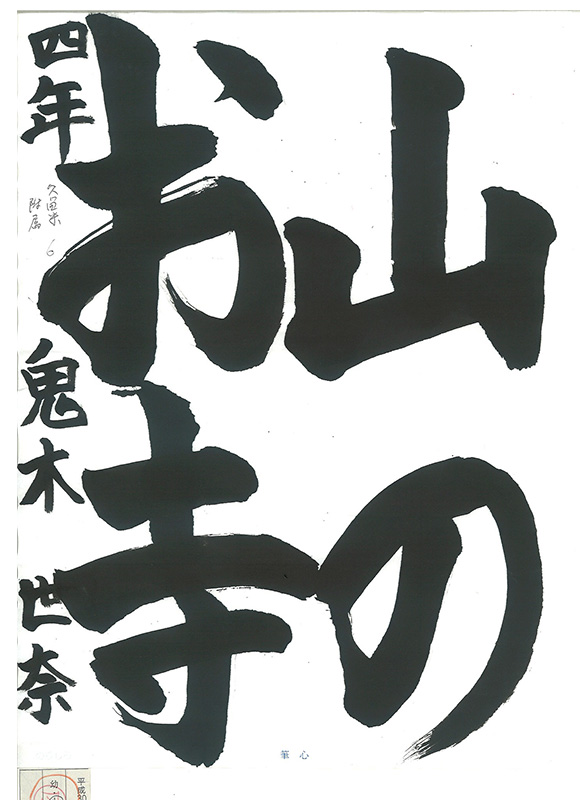 山の
お寺
四年 鬼木 世奈
久留米
附属 6
筆心
平成30
幼